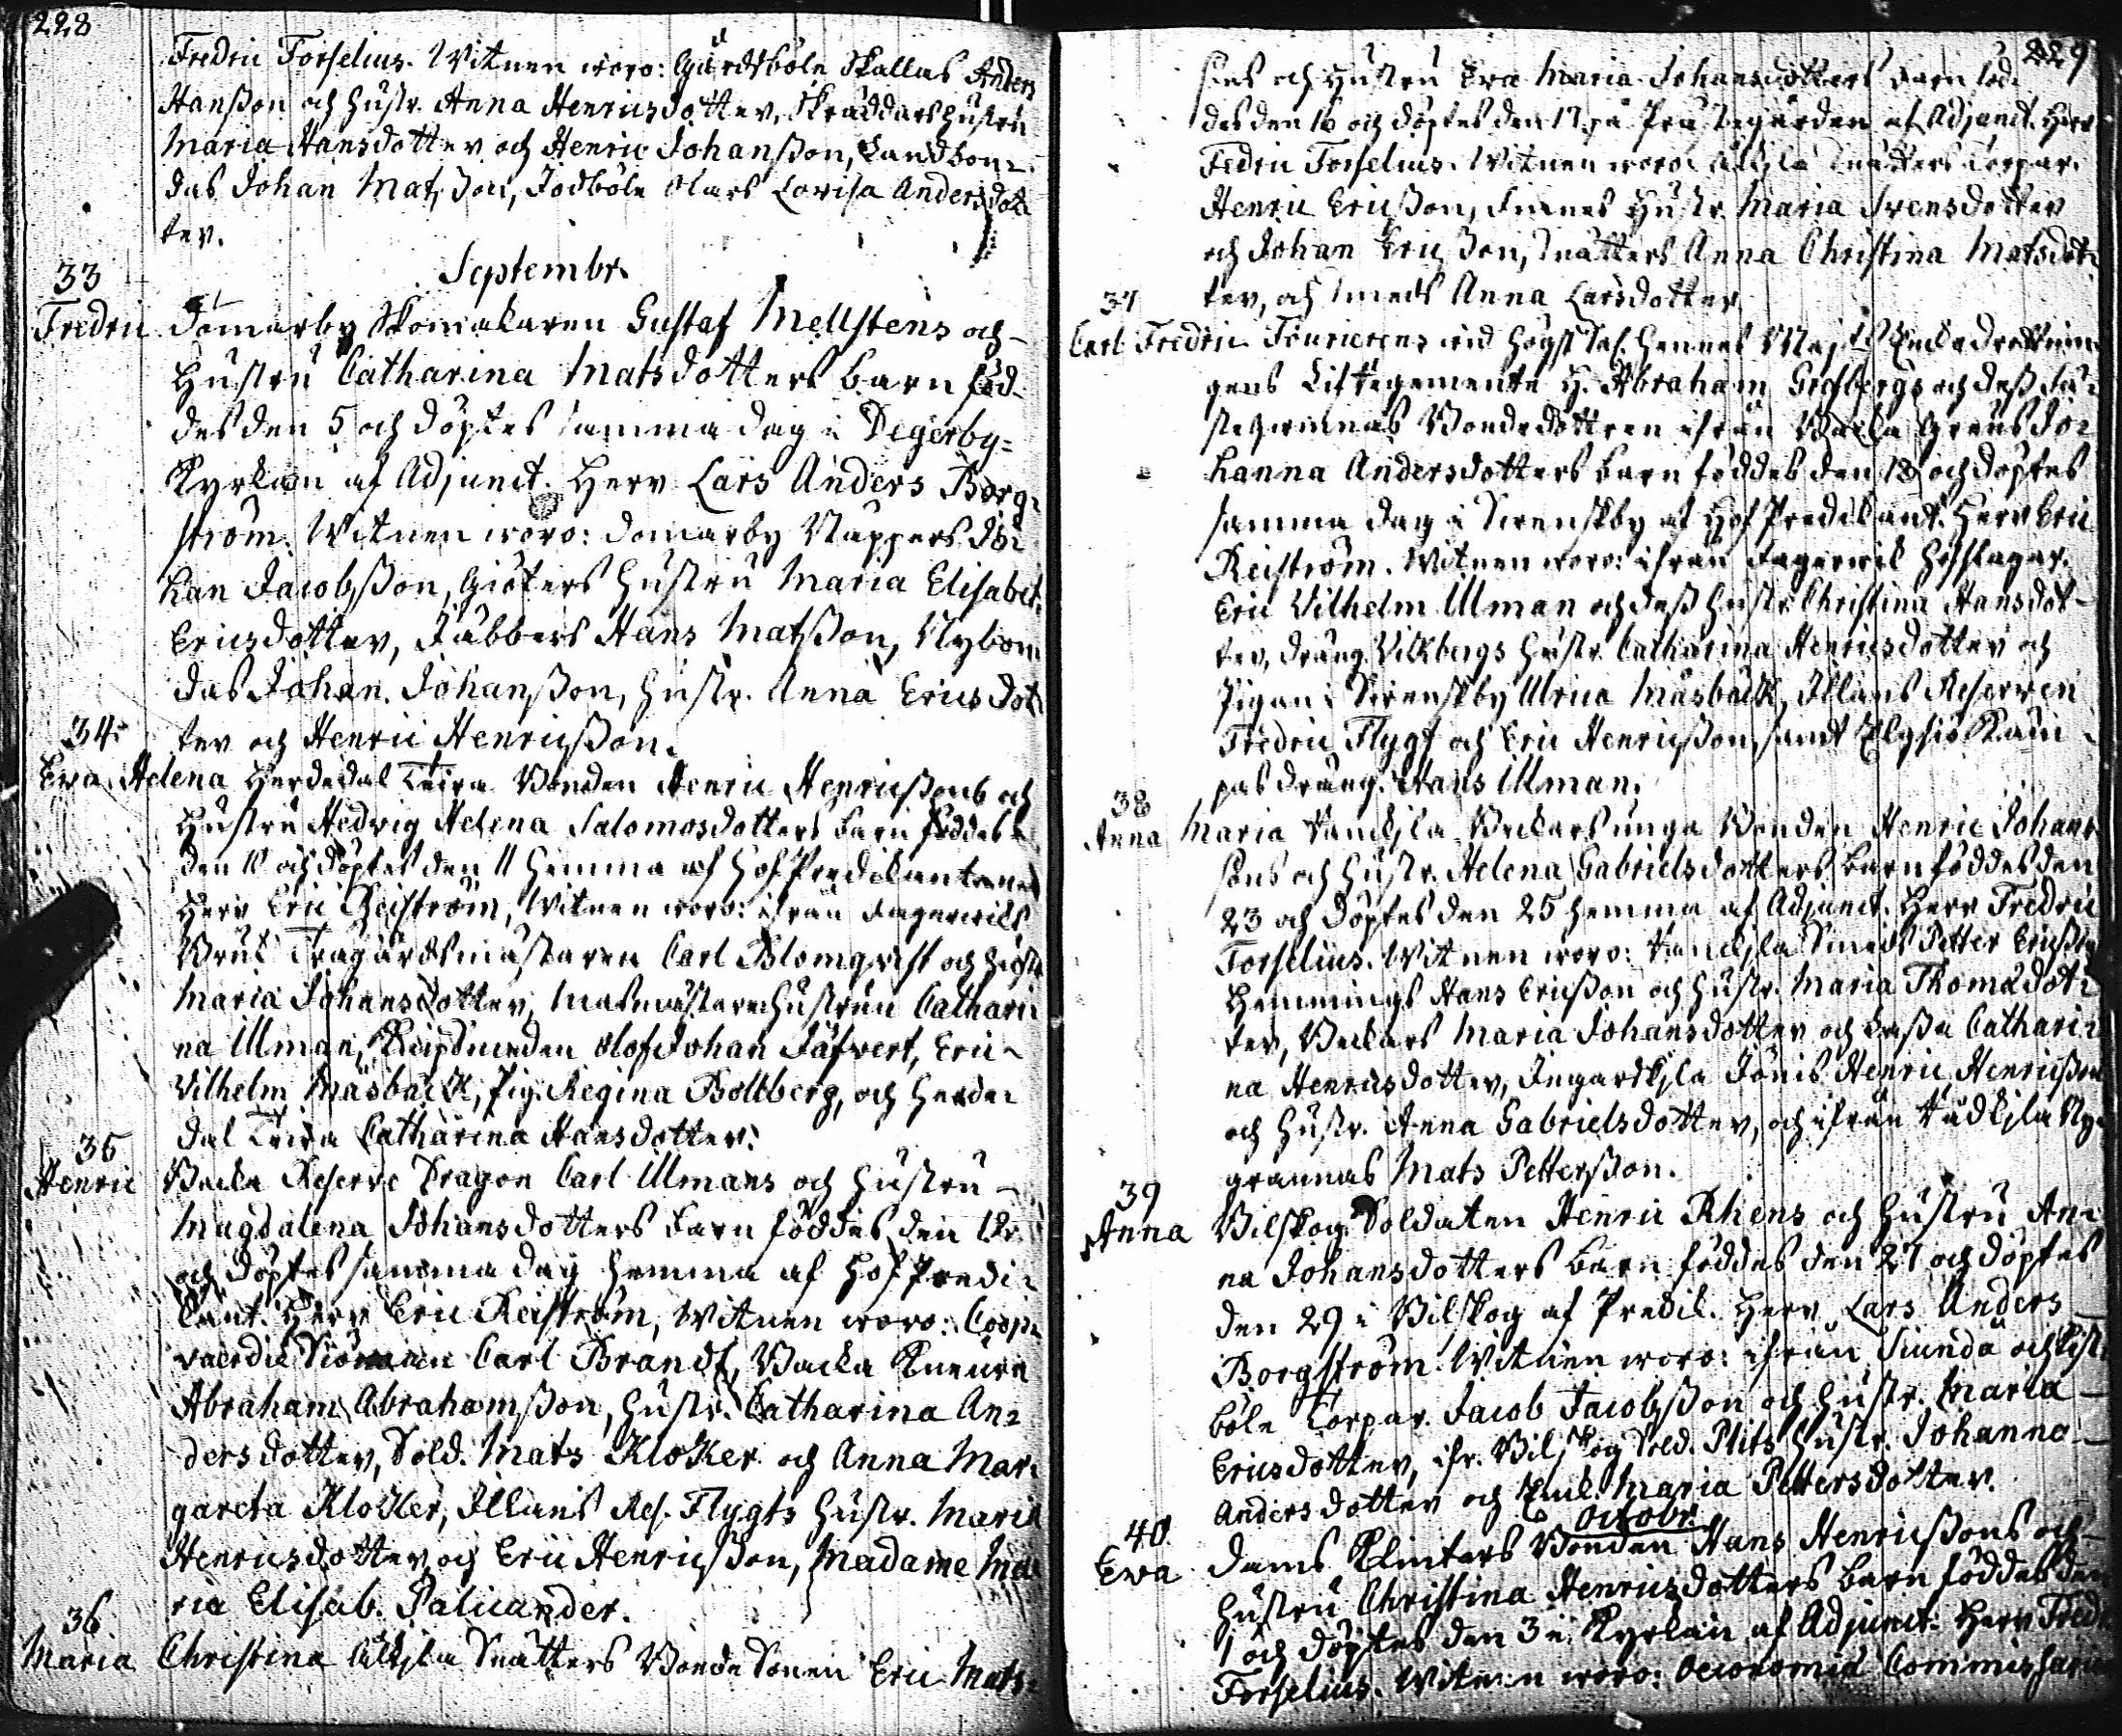 228
Fredric Forselius. Witnen woro: Gurdsböle Skallas Anders
Hansson och hustr. Anna Henricsdotter, Skräddarshustru
Maria Hansdotter och Henric Johansson, Landbon-
das Johan Matsson, Jodböle Olars Lovisa Andersdot-
ter.
Septembr.
33
Fredric Domarby Skomakaren Gustaf Mellstens och
hustru Catharina Matsdotters barn föd-
des den 5 och döptes samma dag i Degerby-
Kyrkan af Adjunct. Herr Lars Anders Borg-
ström. Witnen woro: Domarby Nappers Jo-
han Jacobsson, Giöters hustru Maria Elisabet
Ericsdotter, Jubbers Hans Matsson, Nybon-
das Johan Johansson, hustr. Anna Ericsdot-
34. ter och Henric Henricsson.
Ewa Helena Herdedal Bonden Henric Henricssons och
hustru Hedvig Helena Salomosdotters barn föddes
den 10 och döptes den 11 hemma af Hof Predikanten
Herr Eric Reiström, Witnen woro: ifrån Fagerwiks
Bruk Trägårdsmästaren Carl Blomqvist och hustr.
Maria Johansdotter, Masmästarehustrun Cathari-
na Ulman, Olof Johan Jäfvert, Eric
Vilhelm Måsbäck, pig. Regina Boltberg, och Herde-
dal Catharina Hansdotter.
35
Henric Backa Reserve Dragon Carl Ulmans och hustru
Magdalena Johansdotters barn föddes den
och döptes samma dag hemma af Hof Predi-
kant. Herr Eric Reiström, Witnen woro: Coop-
vaerdie Siöman Carl Brandt, Backa
Abraham Abrahamsson, hustr. Catharina An-
dersdotter, Sold. Mats Klocker och Anna Mar-
gareta Klocker, Illans Res. Flygts hustr. Maria
Henricsdotter och Eric Henricsson, Madame Ma-
ria Elisab. Palicander.
36
Maria Christina Snätters Bonde Sonen Eric Mats-
229
sons och hustru Ewa Maria Johansdotters barn föd-
des den 16 och döptes den 17 på Prästegården af Adjunct. Herr
Fedric Forselius. Witnen woro: Snätters Torpar.
Henric Ericsson, hustr. Maria Svensdotter
och Johan Ericsson, Snätters Anna Christina Matsdot-
37 ter, och Smeds Anna Larsdotter.
Carl Fredric Fourierens vid Högst Sal. Hennes Maj:ts Enkedrottnin-
gens Lifregemente H. Abraham och dess fä-
steqwinnas Bondedottren ifrån Backa Jo-
hanna Andersdotters barn föddes den 18 och döptes
samma dag i Svenskby af Hof Predikant. Herr Eric
Reiström. Witnen woro: ifrån Fagerwik
Eric Vilhelm Ulman och dess hustr. Christina Hansdot-
ter, dräng. Vikbergs hustr. Catharina Henricsdotter och
Pigan i Svenskby Ulrica Måsbäck, Illans Reserven
Fredric Flygt och Eric Henricsson, samt
dräng. Hans Ulman.
38
Anna Maria unga Bonden Henric Johans-
sons och hustr. Helena Gabrielsdotters barn föddes den
23 och döptes den 25 hemma af Adjunct. Herr Fredric
Forselius. Witnen woro: Smeds Petter Ericsson
Hemmings Hans Ericsson och hustr. Maria Thomädot-
ter, Maria Johansdotter och Cathari-
na Henricsdotter, Jönis Henric Henricsson
och hustr. Anna Gabrielsdotter, och ifrån Ny-
grannas Mats Pettersson.
39
Anna Bilskog Soldaten Henric Rhens och hustru An-
na Johansdotters barn föddes den 27 och döptes
den 29 i Bilskog af Predik. Herr Lars Anders
Borgström. Witnen woro: ifrån Siundå och
böle Torpar. Jacob Jacobsson och hustr. Maria
Ericsdotter, ifr. Bilskog Sold. Plits hustr. Johanna
Andersdotter och Enk. Maria Pettersdotter.
Octobr.
40.
Ewa Klinters Bonden Hans Henricssons och
hustru Christina Henricsdotters barn föddes den
1 och döptes den 3 i Kyrkan af Adjunct. Herr Fred.
Forselius. Witnen woro: Oeconomie Commissarien